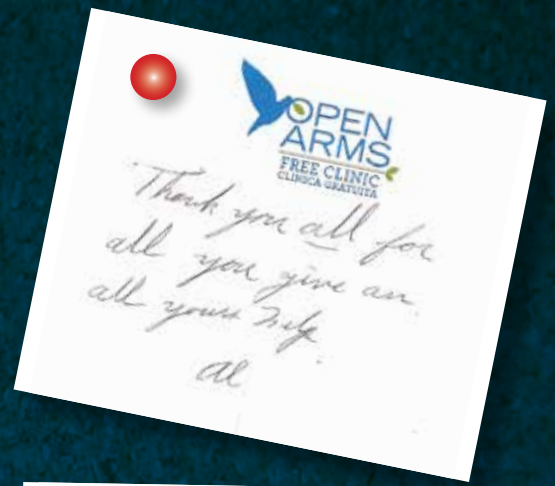 OPEN
ARMS
FREE CLINIC
CLINICA GRATUITA
Thank you all for
all you give an
all your help.
al